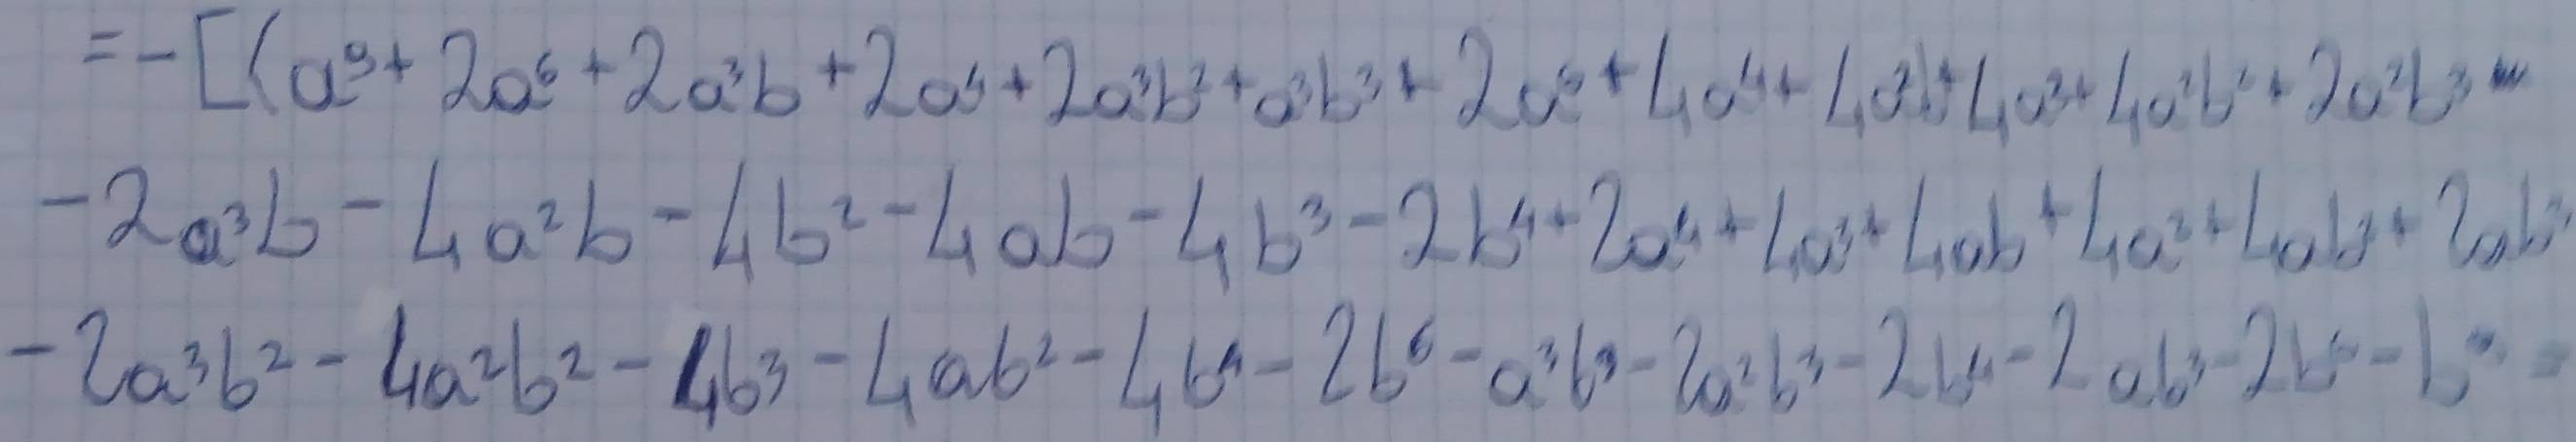 = - [(a⁹ + 2a⁶ + 2a³b + 2a⁴ + 2a³b² + a³b³ + 2a⁵ + 4a⁴ + 4a²b + 4a³ + 4a²b² + 2a²b³ -
- 2a³b - 4a²b - 4b² - 4ab - 4b³ - 2b⁴ + 2a⁴ + 4a³ + 4ab + 4a² + 4ab² + 2ab³
- 2a³b² - 4a²b² - 4b³ - 4ab² - 4b⁴ - 2b⁶ - a³b³ - 2a²b³ - 2b⁴ - 2ab³ - 2b - b =